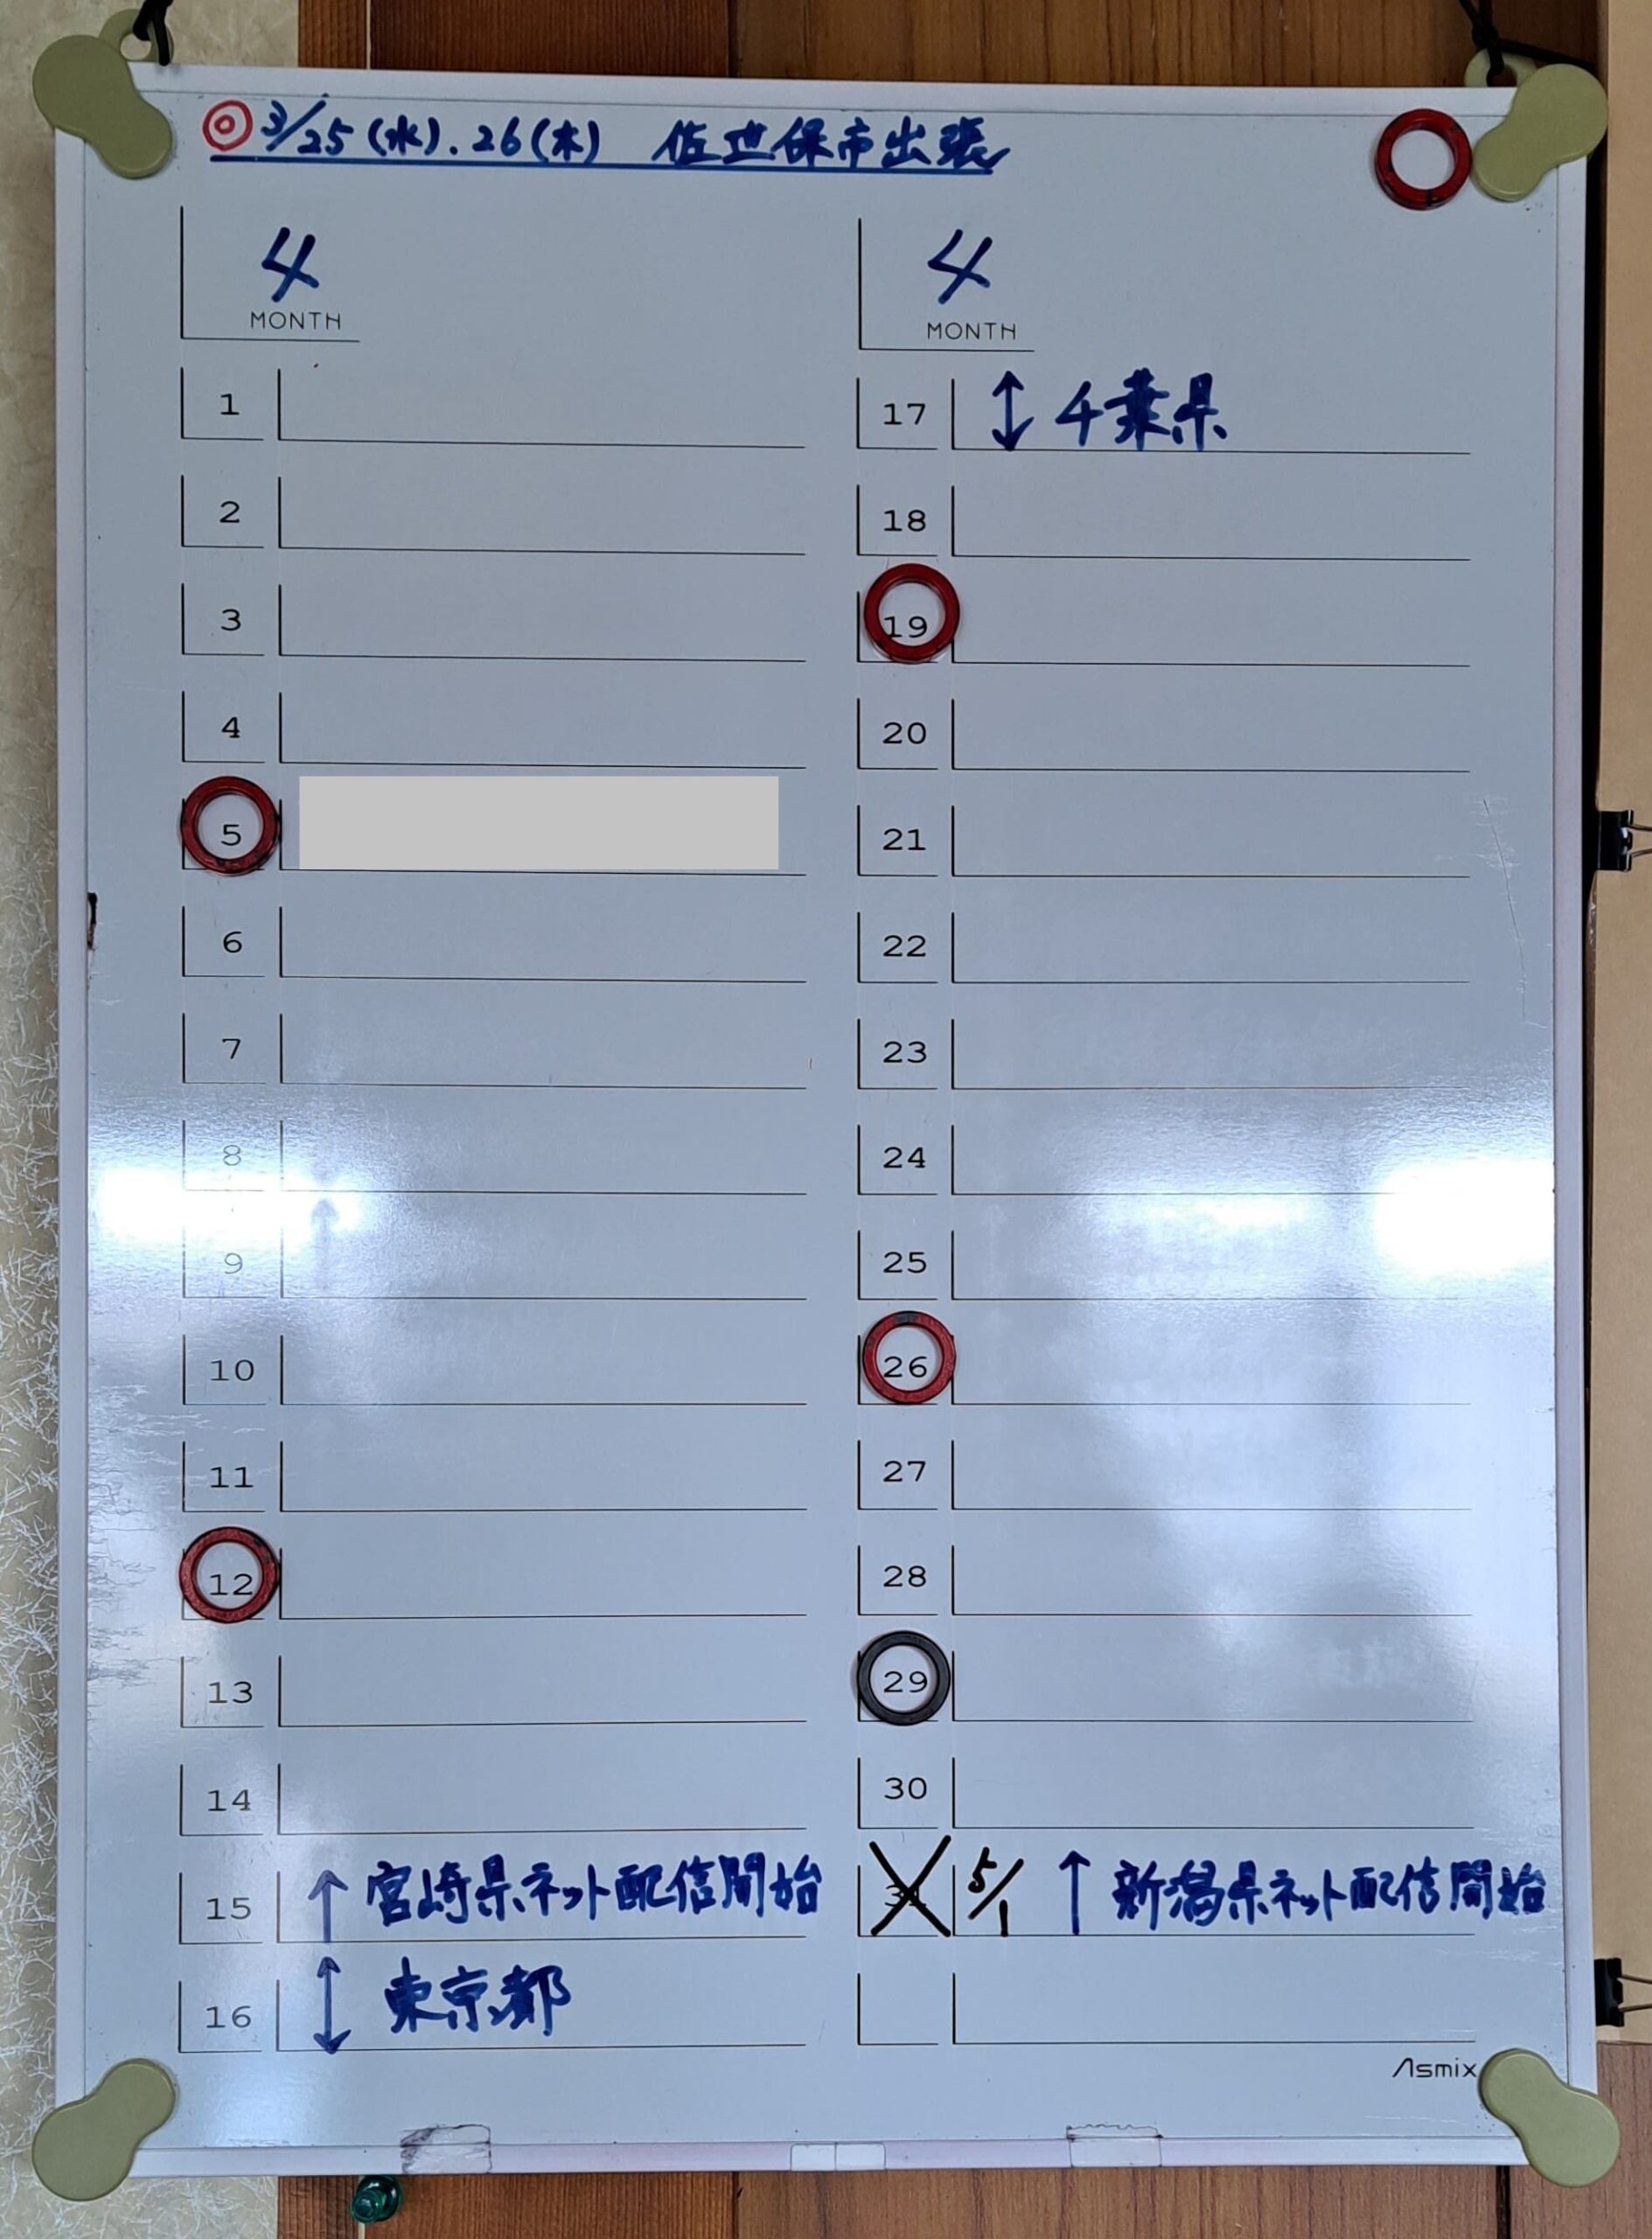 ◎3/25(水).26(木) 佐世保市出張
4
MONTH
1
2
3
4
5
6
7
8
9
10
11
12
13
14
15 ↑ 宮崎県ネット配信開始
16 ↕ 東京都
4
MONTH
17 ↕ 千葉県
18
19
20
21
22
23
24
25
26
27
28
29
30
31 5/1 ↑ 新潟県ネット配信開始
Asmix